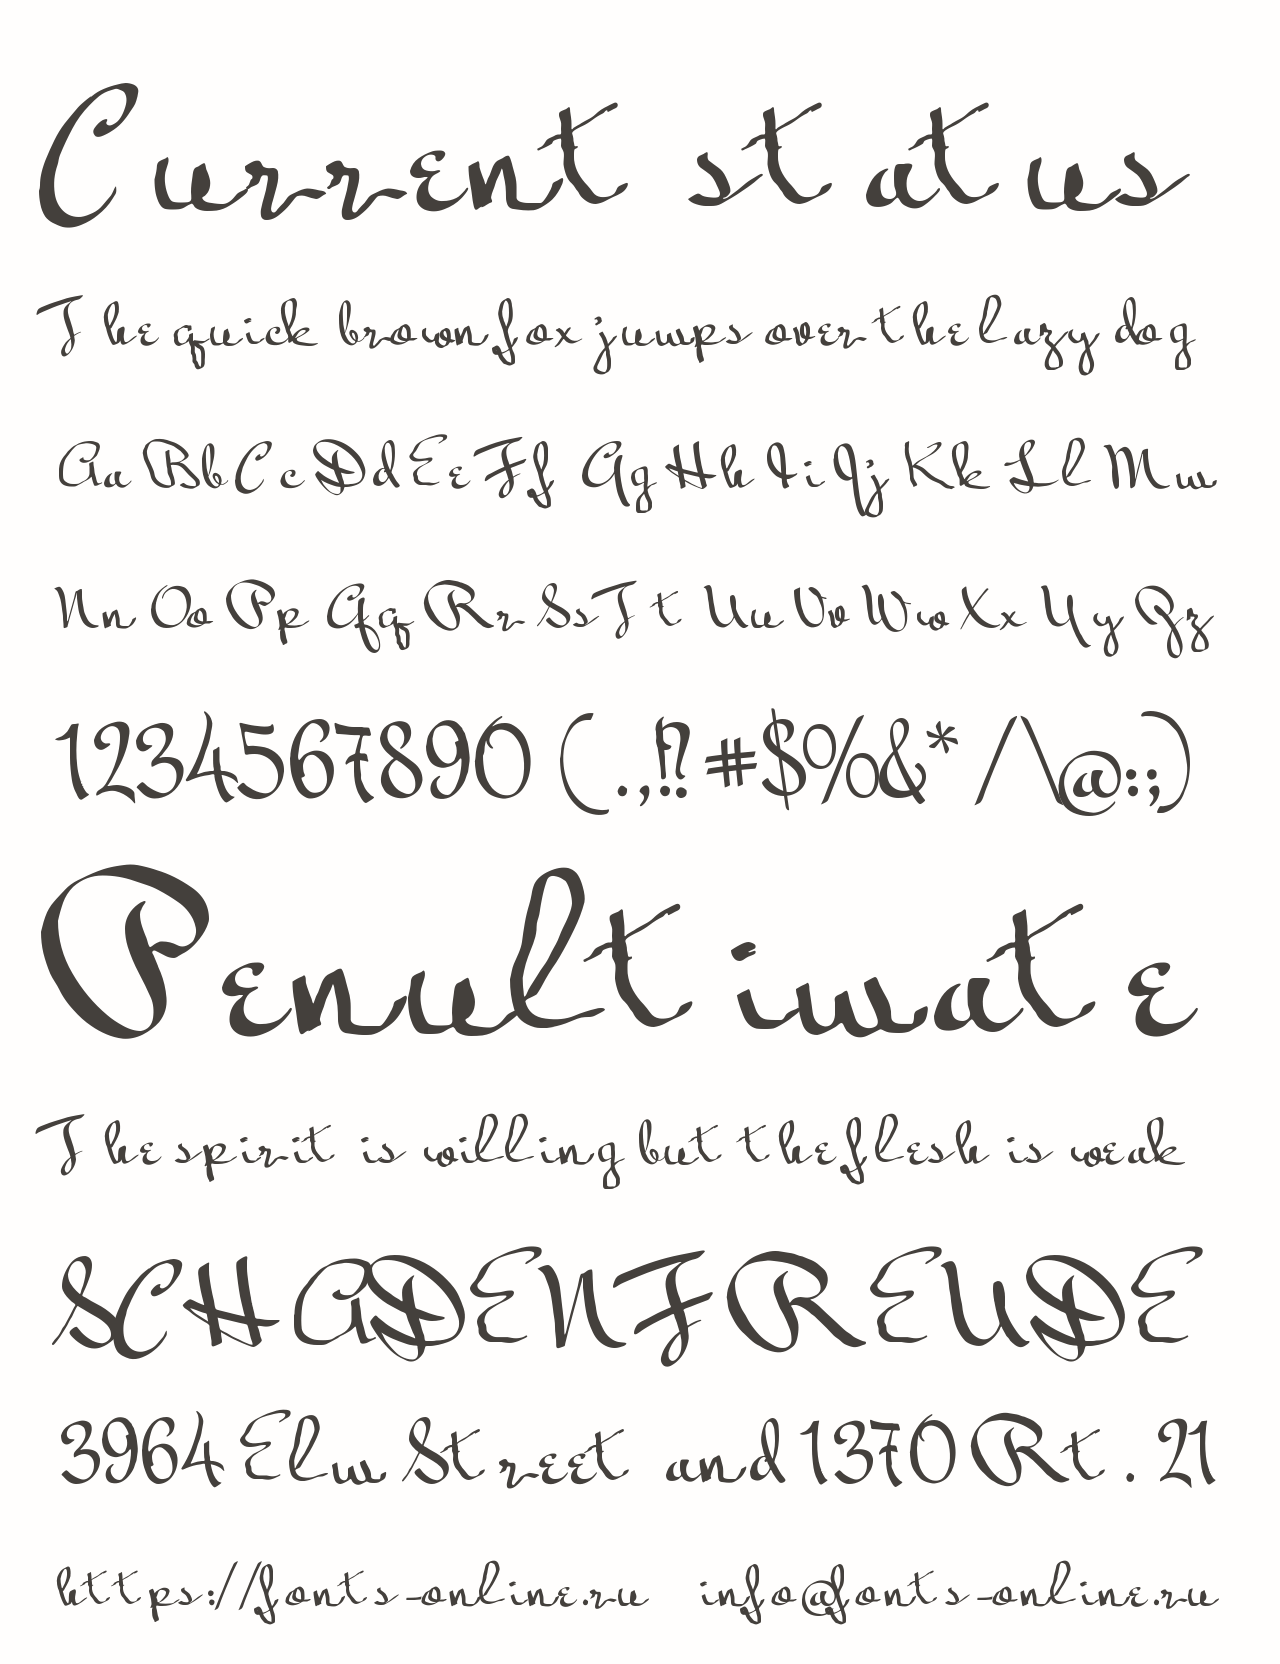 Current status
The quick brown fox jumps over the lazy dog
Aa Bb Cc Dd Ee Ff Gg Hh Ii Jj Kk Ll Mm
Nn Oo Pp Qq Rr Ss Tt Uu Vv Ww Xx Yy Zz
1234567890 (.,!? #$%&* /\@:;)
Penultimate
The spirit is willing but the flesh is weak
SCHADENFREUDE
3964 Elm Street and 1370 Rt. 21
https://fonts-online.ru info@fonts-online.ru